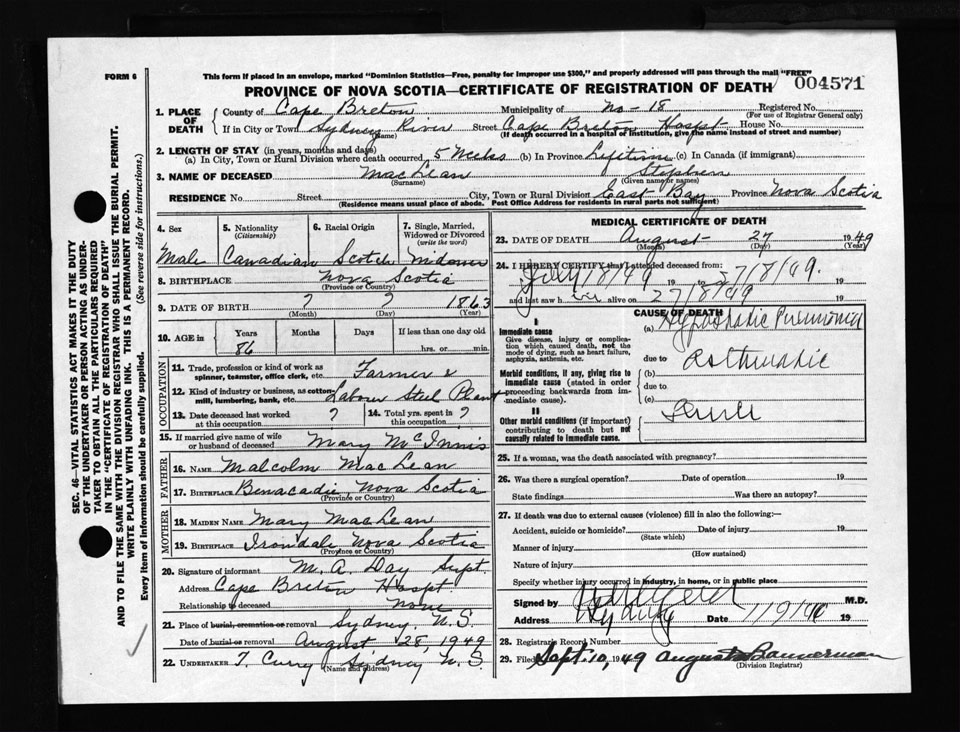 FORM 6
This form if placed in an envelope, marked "Dominion Statistics—Free, penalty for improper use $300," and properly addressed will pass through the mail "FREE"
PROVINCE OF NOVA SCOTIA—CERTIFICATE OF REGISTRATION OF DEATH
004571
SEC. 46—VITAL STATISTICS ACT MAKES IT THE DUTY
OF THE UNDERTAKER OR PERSON ACTING AS UNDER-
TAKER TO OBTAIN ALL THE PARTICULARS REQUIRED
IN THE "CERTIFICATE OF REGISTRATION OF DEATH"
AND TO FILE THE SAME WITH THE DIVISION REGISTRAR WHO SHALL ISSUE THE BURIAL PERMIT.
WRITE PLAINLY WITH UNFADING INK. THIS IS A PERMANENT RECORD.
Every item of information should be carefully supplied. (See reverse side for instructions.)
1. PLACE OF DEATH
County of Cape Breton Municipality of No-18 Registered No.
(For use of Registrar General only)
If in City or Town Sydney River Street Cape Breton Hospt House No.
(Name) (If death occurred in a hospital of institution, give the name instead of street and number)
2. LENGTH OF STAY (in years, months and days)
(a) In City, Town or Rural Division where death occurred 5 Weeks (b) In Province Lifetime (c) In Canada (if immigrant)
3. NAME OF DECEASED MacLean Stephen
(Surname) (Given name or names)
RESIDENCE No. Street City, Town or Rural Division East Bay Province Nova Scotia
(Residence means usual place of abode. Post Office Address for residents in rural parts not sufficient)
4. Sex
Male
5. Nationality
(Citizenship)
Canadian
6. Racial Origin
Scotch
7. Single, Married,
Widowed or Divorced
(write the word)
8. BIRTHPLACE Nova Scotia
(Province or Country)
9. DATE OF BIRTH ? ? 1863
(Month) (Day) (Year)
10. AGE in
Years Months Days If less than one day old
86 hrs. or min.
OCCUPATION
11. Trade, profession or kind of work as
spinner, teamster, office clerk, etc. Farmer &
12. Kind of industry or business, as cotton-
mill, lumbering, bank, etc. Labour Steel Plant
13. Date deceased last worked
at this occupation ?
14. Total yrs. spent in
this occupation ?
15. If married give name of wife
or husband of deceased Mary McInnis
FATHER
16. NAME Malcolm MacLean
17. BIRTHPLACE Benacadie Nova Scotia
(Province or Country)
MOTHER
18. MAIDEN NAME Mary MacLean
19. BIRTHPLACE Irondale Nova Scotia
(Province or Country)
20. Signature of informant M. A. Day Supt.
Address Cape Breton Hospt.
Relationship to deceased none
21. Place of burial, cremation or removal Sydney, N.S.
Date of burial or removal August 28, 1949
22. UNDERTAKER T. Curry Sydney N.S.
(Name and address)
MEDICAL CERTIFICATE OF DEATH
23. DATE OF DEATH August 27 1949
(Month) (Day) (Year)
24. I HEREBY CERTIFY that I attended deceased from:
19 to 27/8/49. 19
and last saw him alive on 27/8/49 19
CAUSE OF DEATH
I
Immediate cause
Give disease, injury or complica-
tion which caused death, not the
mode of dying, such as heart failure,
asphyxia, asthenia, etc.
(a) Hypostatic Pneumonia
due to
Morbid conditions, if any, giving rise to
immediate cause (stated in order
proceeding backwards from im-
mediate cause).
(b)
due to
(c)
II
Other morbid conditions (if important)
contributing to death but not
causally related to immediate cause.
25. If a woman, was the death associated with pregnancy?
26. Was there a surgical operation? Date of operation 19
State findings Was there an autopsy?
27. If death was due to external causes (violence) fill in also the following:—
Accident, suicide or homicide? Date of injury 19
(State which)
Manner of injury
(How sustained)
Nature of injury
Specify whether injury occurred in industry, in home, or in public place
Signed by M.D.
Address Sydney Date 19
28. Registrar's Record Number
29. Filed Sept. 10, 1949 Bannerman
(Division Registrar)